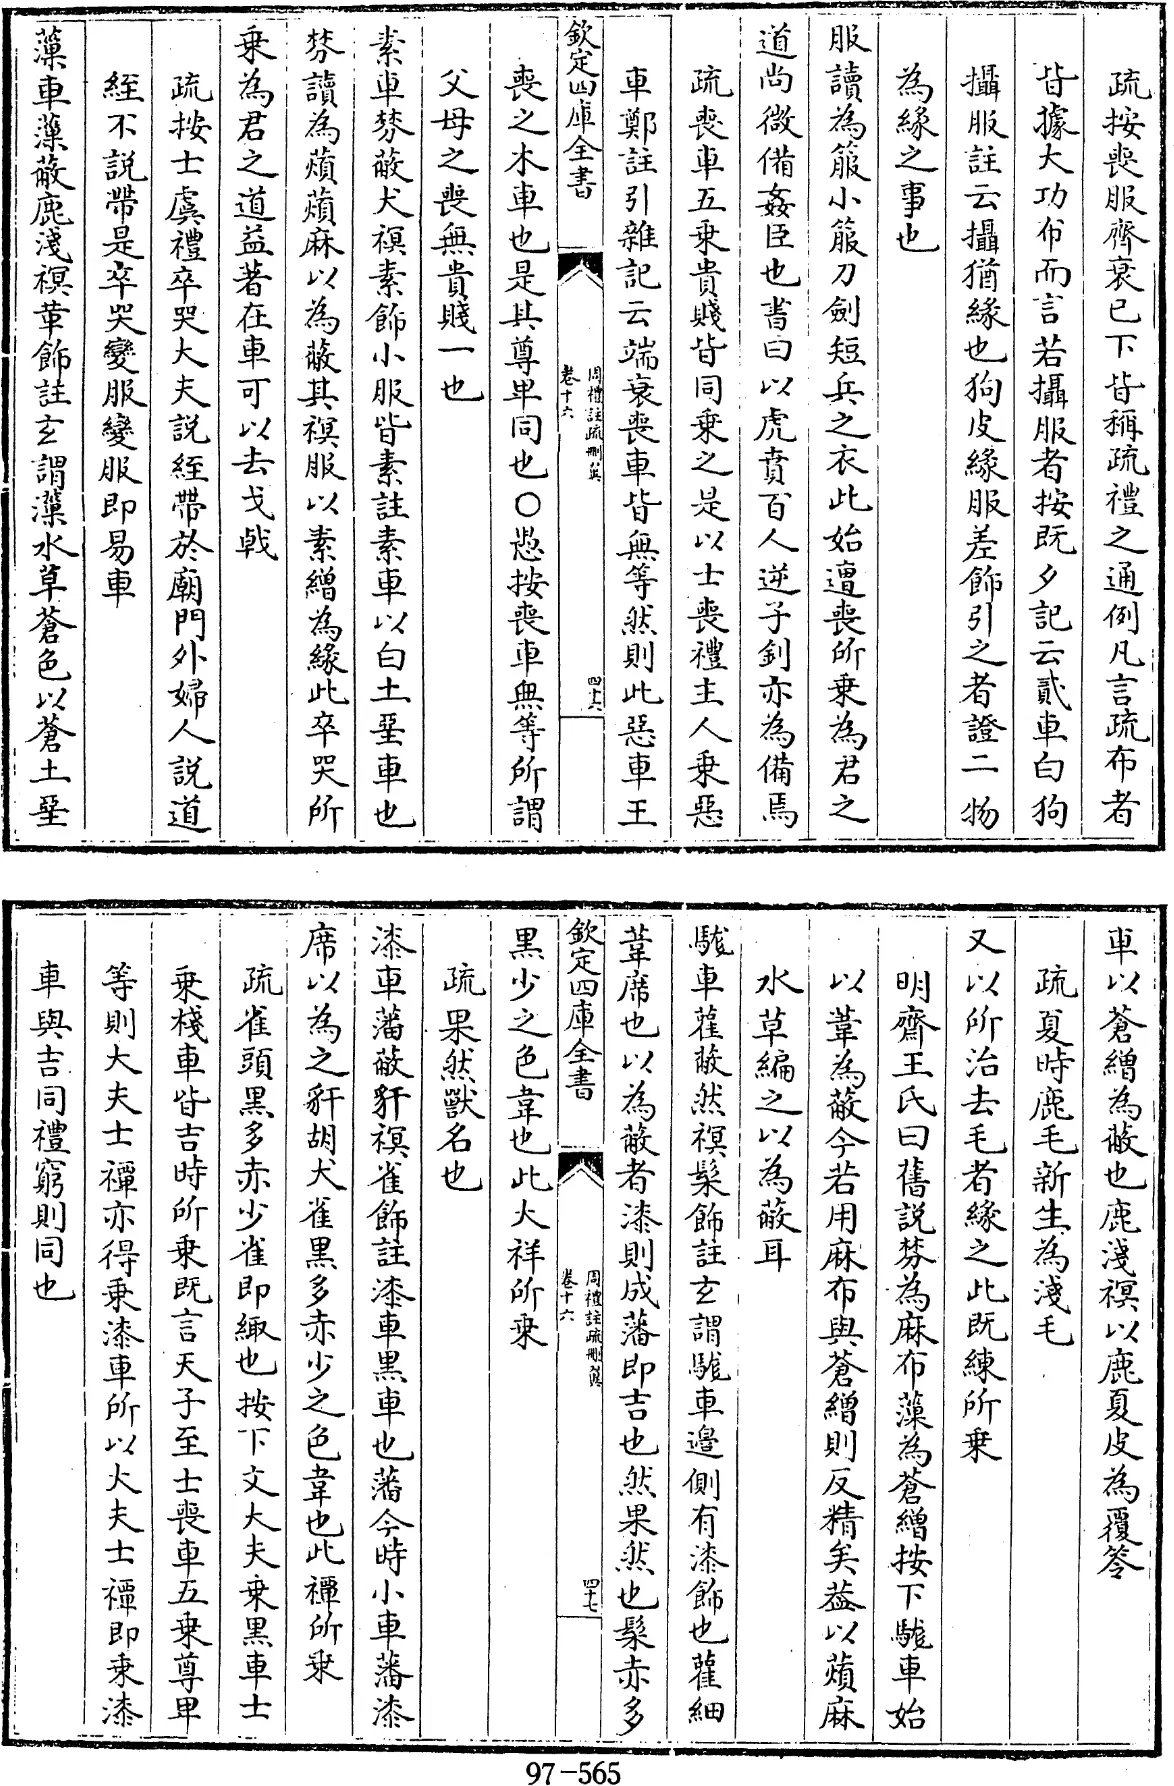 疏按喪服齊衰已下皆稱疏禮之通例凡言疏布者
皆據大功布而言若攝服者按既夕記云貳車白狗
攝服註云攝猶緣也狗皮緣服差飾引之者證二物
為緣之事也
服讀為箙小箙刀劍短兵之衣此始遭喪所乗為君之
道尚微備姦臣也書曰以虎賁百人逆子釗亦為備焉
疏喪車五乗貴賤皆同乗之是以士喪禮主人乗惡
車鄭註引雜記云端衰喪車皆無等然則此惡車王
欽定四庫全書
周禮註疏刪翼
卷十六
四十六
喪之木車也是其尊卑同也○愚按喪車無等所謂
父母之喪無貴賤一也
素車棼蔽犬䙪素飾小服皆素註素車以白土堊車也
棼讀為薠薠麻以為蔽其䙪服以素繒為緣此卒哭所
乗為君之道益著在車可以去戈戟
疏按士虞禮卒哭大夫説絰帶於廟門外婦人説道
絰不説帶是卒哭變服變服即易車
薻車薻蔽鹿淺䙪革飾註玄謂薻水草蒼色以蒼土堊
車以蒼繒為蔽也鹿淺䙪以鹿夏皮為覆笭
疏夏時鹿毛新生為淺毛
又以所治去毛者緣之此既練所乗
明齋王氏曰舊説棼為麻布薻為蒼繒按下駹車始
以葦為蔽今若用麻布與蒼繒則反精矣葢以薠麻
水草編之以為蔽耳
駹車雚蔽然䙪髤飾註玄謂駹車邉側有漆飾也雚細
葦席也以為蔽者漆則成藩即吉也然果然也髤赤多
欽定四庫全書
周禮註疏刪翼
卷十六
四十七
黒少之色韋也此大祥所乗
疏果然獸名也
漆車藩蔽豻䙪雀飾註漆車黒車也藩今時小車藩漆
席以為之豻胡犬雀黒多赤少之色韋也此禫所乗
疏雀頭黒多赤少雀即緅也按下文大夫乗黒車士
乗棧車皆吉時所乗既言天子至士喪車五乗尊卑
等則大夫士禫亦得乗漆車所以大夫士禫即乗漆
車與吉同禮窮則同也
97-565